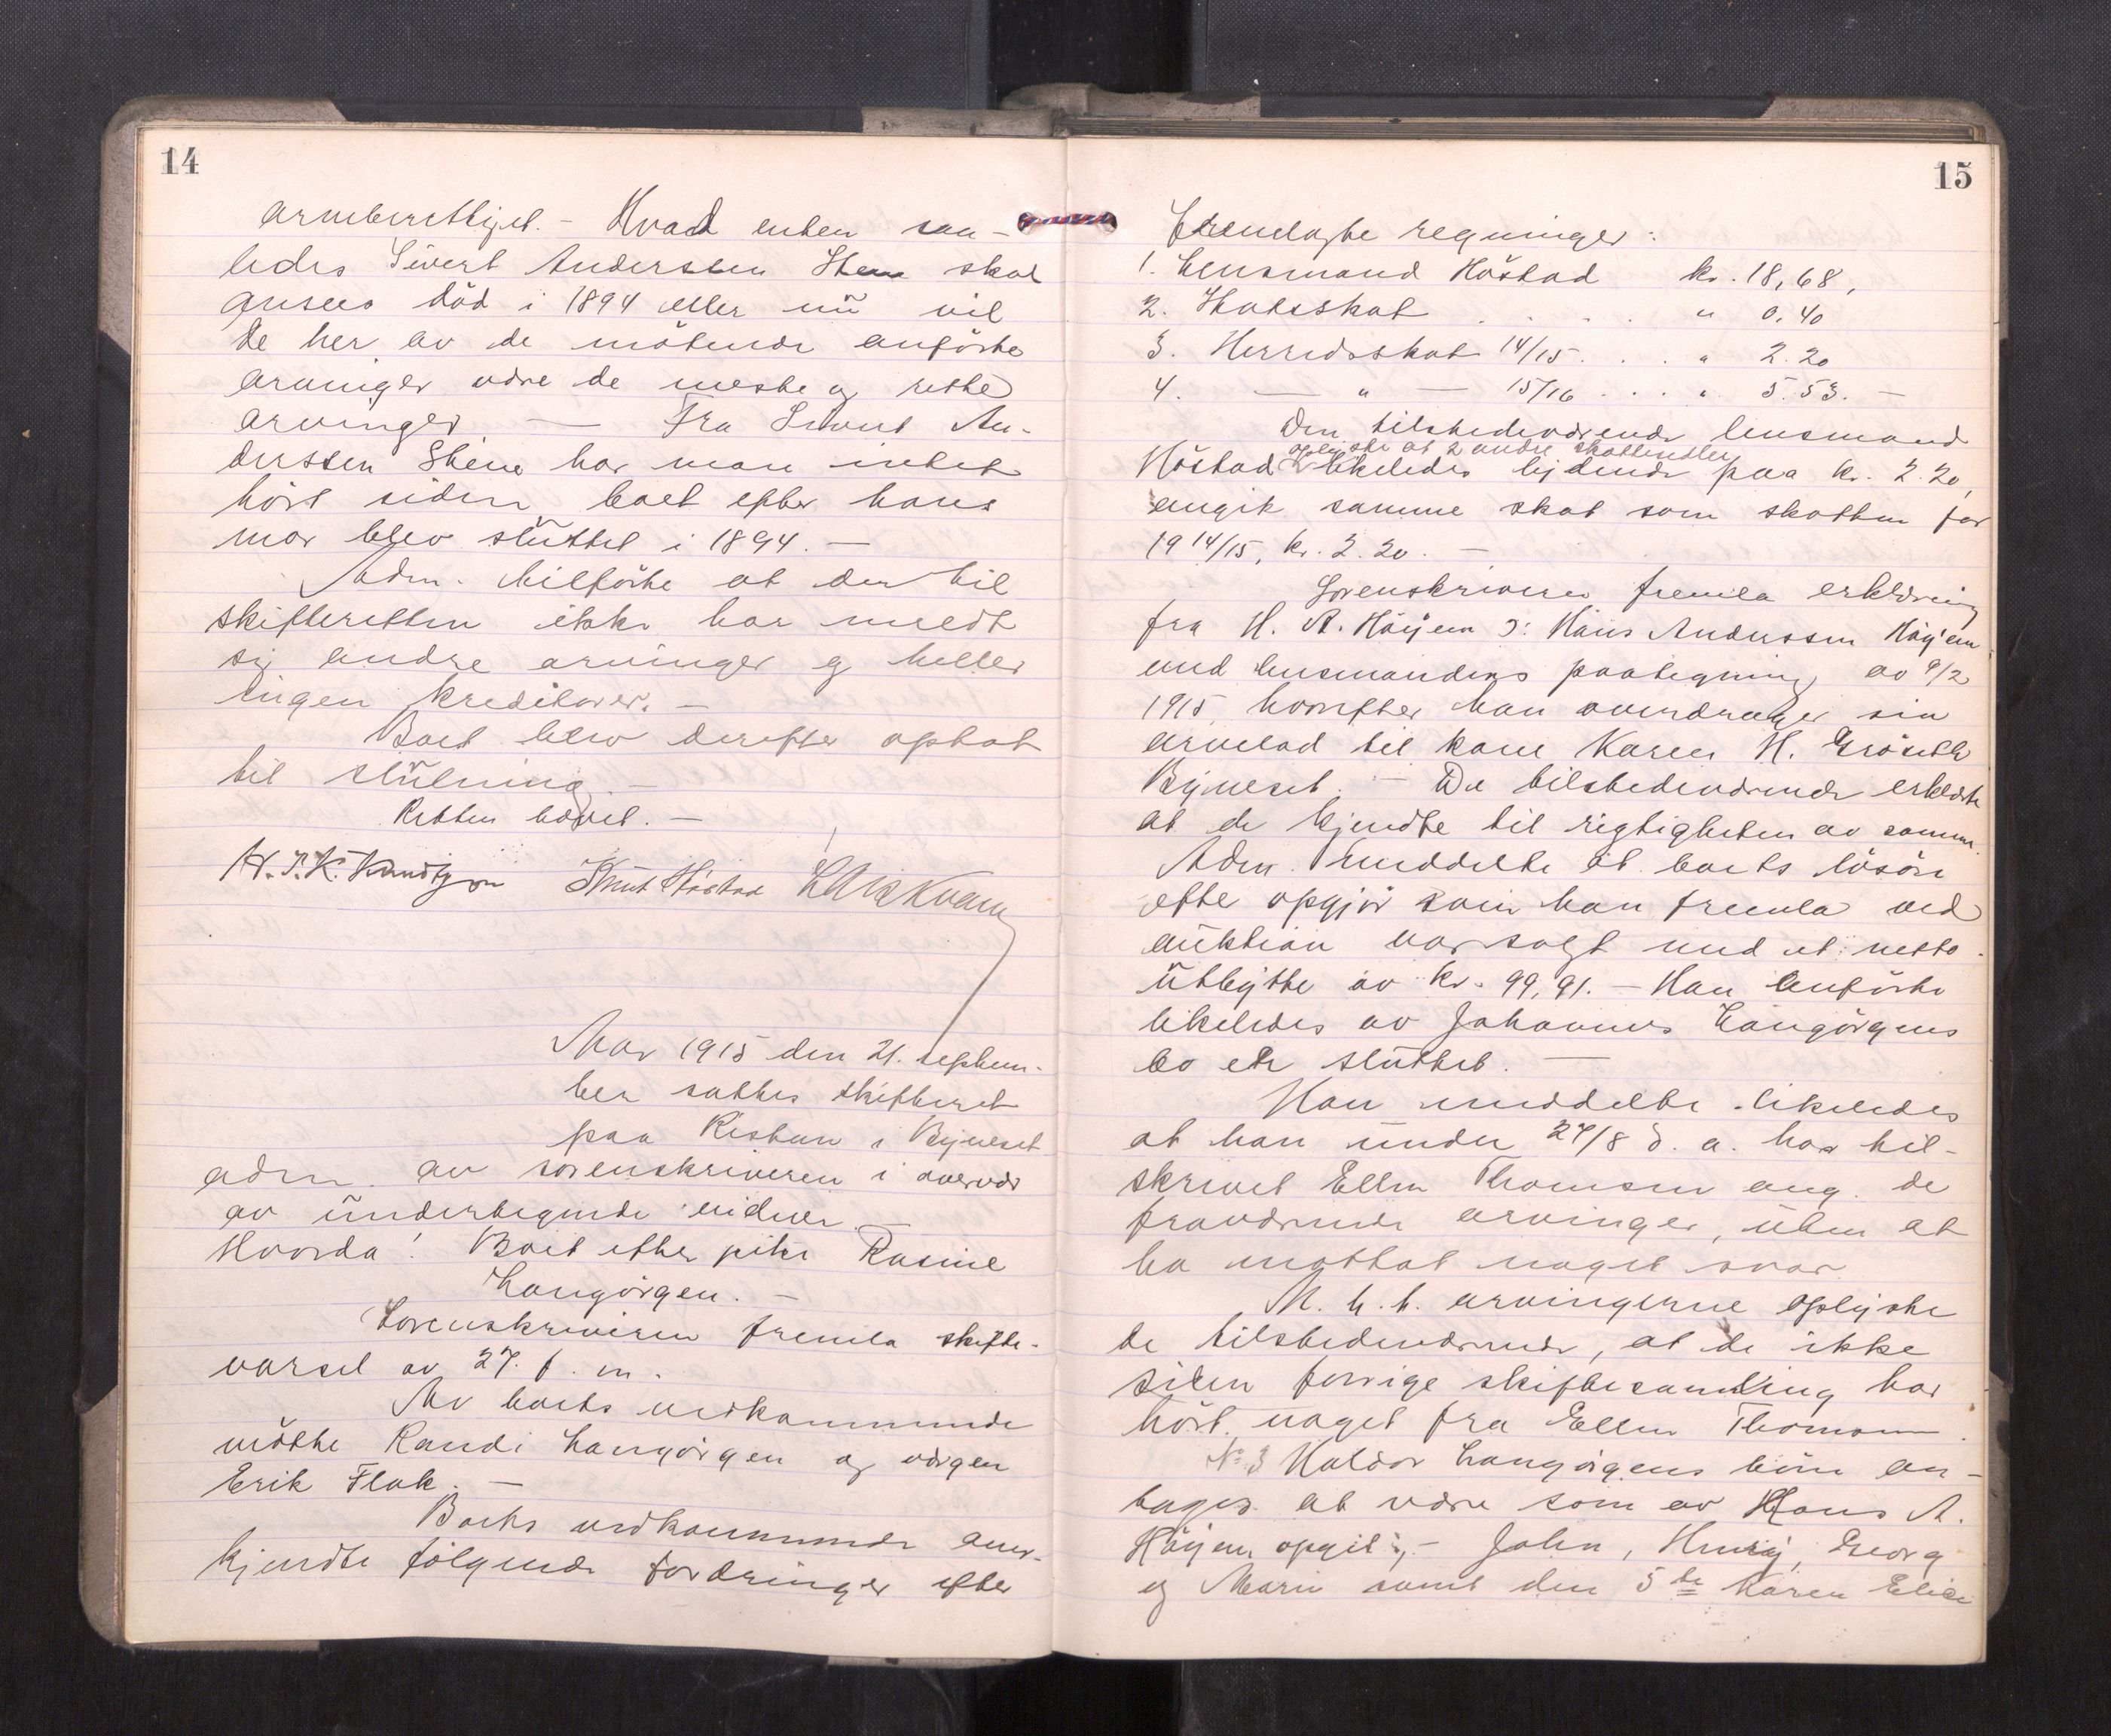 14
arveberettiget. - Hvad enten saa-
ledes Sivert Anderssen Stene skal
ansees död i 1894 eller nu vil
de her av de mötende anförte
arvinger være de neste og rette
arvinger — Fra Sivert An-
derssen Stene har man intet
hört siden boet efter hans
mor blev sluttet i 1894. —
Adm. tilförte at der til
skifteretten ikke har meldt
sig andre arvinger og heller
ingen kreditorer. —
Boet blev derefter optat
til slutning. —
Retten hævet. —
H. P. K. Knut Höstad
Aar 1915 den 21. septem-
ber sattes skifteret
paa Ristan i Byneset
adm. av sorenskriveren i overvær
av undertegnede vidner. —
Hvorda! Boet efter pike Rasine
Langörgen. —
Sorenskriveren fremla skifte-
varsel av 27. f. m.
Av boets vedkommende
mötte Randi Langörgen og værgen
Erik Flak. —
Boets vedkommende aner-
kjendte fölgende fordringer efter
15
fremlagte regninger:
1. Lensmand Höstad kr. 18,68,
2. Statsskat . . . . " 0.40
3. Herredsskat 14/15 . . . " 2.20
4. — " — 15/16 . . . " 5.53. —
Den tilstedeværende lensmand
oplyste at 2 andre skattesedler
Höstad likeledes lydende paa kr. 2.20,
angik samme skat som skatten for
1914/15, kr. 2.20. —
Sorenskriveren fremla erklæring
fra H. A. Höyem ɔ: Hans Anderssen Höyem
med lensmandens paategning av 9/2
1915, hvorefter han overdrager sin
arvelod til kone Karen H. Gröseth
Byneset. — De tilstedeværende erklærte
at de kjendte til rigtigheten av samme.
Adm. meddelte at boets lösöre
efter opgjör som han fremla ved
auktion var solgt med et netto
utbytte av kr. 99,91. — Han anförte
likeledes av Johannes Langörgens
bo er sluttet. —
Han meddelte likeledes
at han under 27/8 d. a. har til-
skrevet Ellen Thomsen ang. de
fraværende arvinger, uten at
ha mottat noget svar
M. h. t. arvingerne oplyste
de tilstedeværende, at de ikke
siden forrige skiftesamling har
hört noget fra Ellen Thomsen.
No 3 Haldor Langörgens börn an-
tages at være som av Hans A.
Höyem opgit: - John, Henry, Georg
og Marie samt den 5te Karen Elise